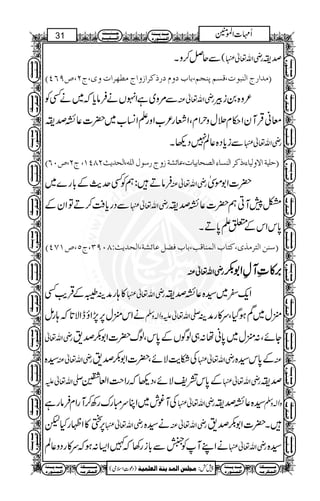 31
اُمّہاتُ المؤمنین
صدیقہ رضی اللہ تعالیٰ عنہا) سے حاصل کرو۔
(مدارج النبوت،قسم پنجم،باب دوم درذکرازواج مطہرات وی،ج۲،ص۴۶۹)
عروہ بن زبیر رضی اللہ تعالیٰ عنہ سے مروی ہے انہوں نے فرمایا کہ میں نے کسی کو
معانی قرآن احکام حلال وحرام، اشعار عرب اور علم انساب میں حضرت عائشہ صدیقہ
رضی اللہ تعالیٰ عنہا سے زیادہ عالم نہیں دیکھا۔
(حلیۃ الاولیاء،ذکر النساء الصحابیات،عائشۃ زوج رسول اللہ،الحدیث۱۴۸۲،ج۲،ص۶۰)
حضرت ابوموسیٰ رضی اللہ تعالیٰ عنہ فرماتے ہیں: ہم کو کسی حدیث کے بارے میں
مشکل پیش آتی ہم حضرت عائشہ صدیقہ رضی اللہ تعالیٰ عنہا سے دریافت کرتے تو ان کے
پاس اس کے متعلق علم پاتے۔
(سنن الترمذی،کتاب المناقب،باب فضل عائشۃ،الحدیث:۳۹۰۸،ج۵،ص۴۷۱)
برکاتِ آلِ ابوبکر رضی اللہ تعالیٰ عنہ
ایک سفر میں سیدہ عائشہ صدیقہ رضی اللہ تعالیٰ عنہا کا ہار مدینہ طیبہ کے قریب کسی
منزل میں گم ہوگیا، سرکار مدینہ صلی اللہ تعالیٰ علیہ والہ وسلم نے اس منزل پر پڑاؤ ڈالا تاکہ ہار مل
جائے، نہ منزل میں پانی تھا نہ ہی لوگوں کے پاس، لوگ حضرت ابوبکر صدیق رضی اللہ تعالیٰ
عنہ کے پاس سیدہ رضی اللہ تعالیٰ عنہا کی شکایت لائے، حضرت ابوبکر صدیق رضی اللہ تعالیٰ عنہ سیدہ
صدیقہ رضی اللہ تعالیٰ عنہا کے پاس تشریف لائے، دیکھا کہ راحت العاشقین صلی اللہ تعالیٰ علیہ
والہ وسلم سیدہ عائشہ صدیقہ رضی اللہ تعالیٰ عنہا کی آغوش میں اپنا سر مبارک رکھ کر آرام فرما رہے
ہیں۔ حضرت ابوبکر صدیق رضی اللہ تعالیٰ عنہ نے سیدہ رضی اللہ تعالیٰ عنہا پر سختی کا اظہار کیا لیکن
سیدہ رضی اللہ تعالیٰ عنہا نے اپنے آپ کو جنبش سے باز رکھا کہ کہیں ایسا نہ ہو کہ سرکار دو عالم
پیش کش: مجلس المدینۃ العلمیۃ (دعوت اسلامی)